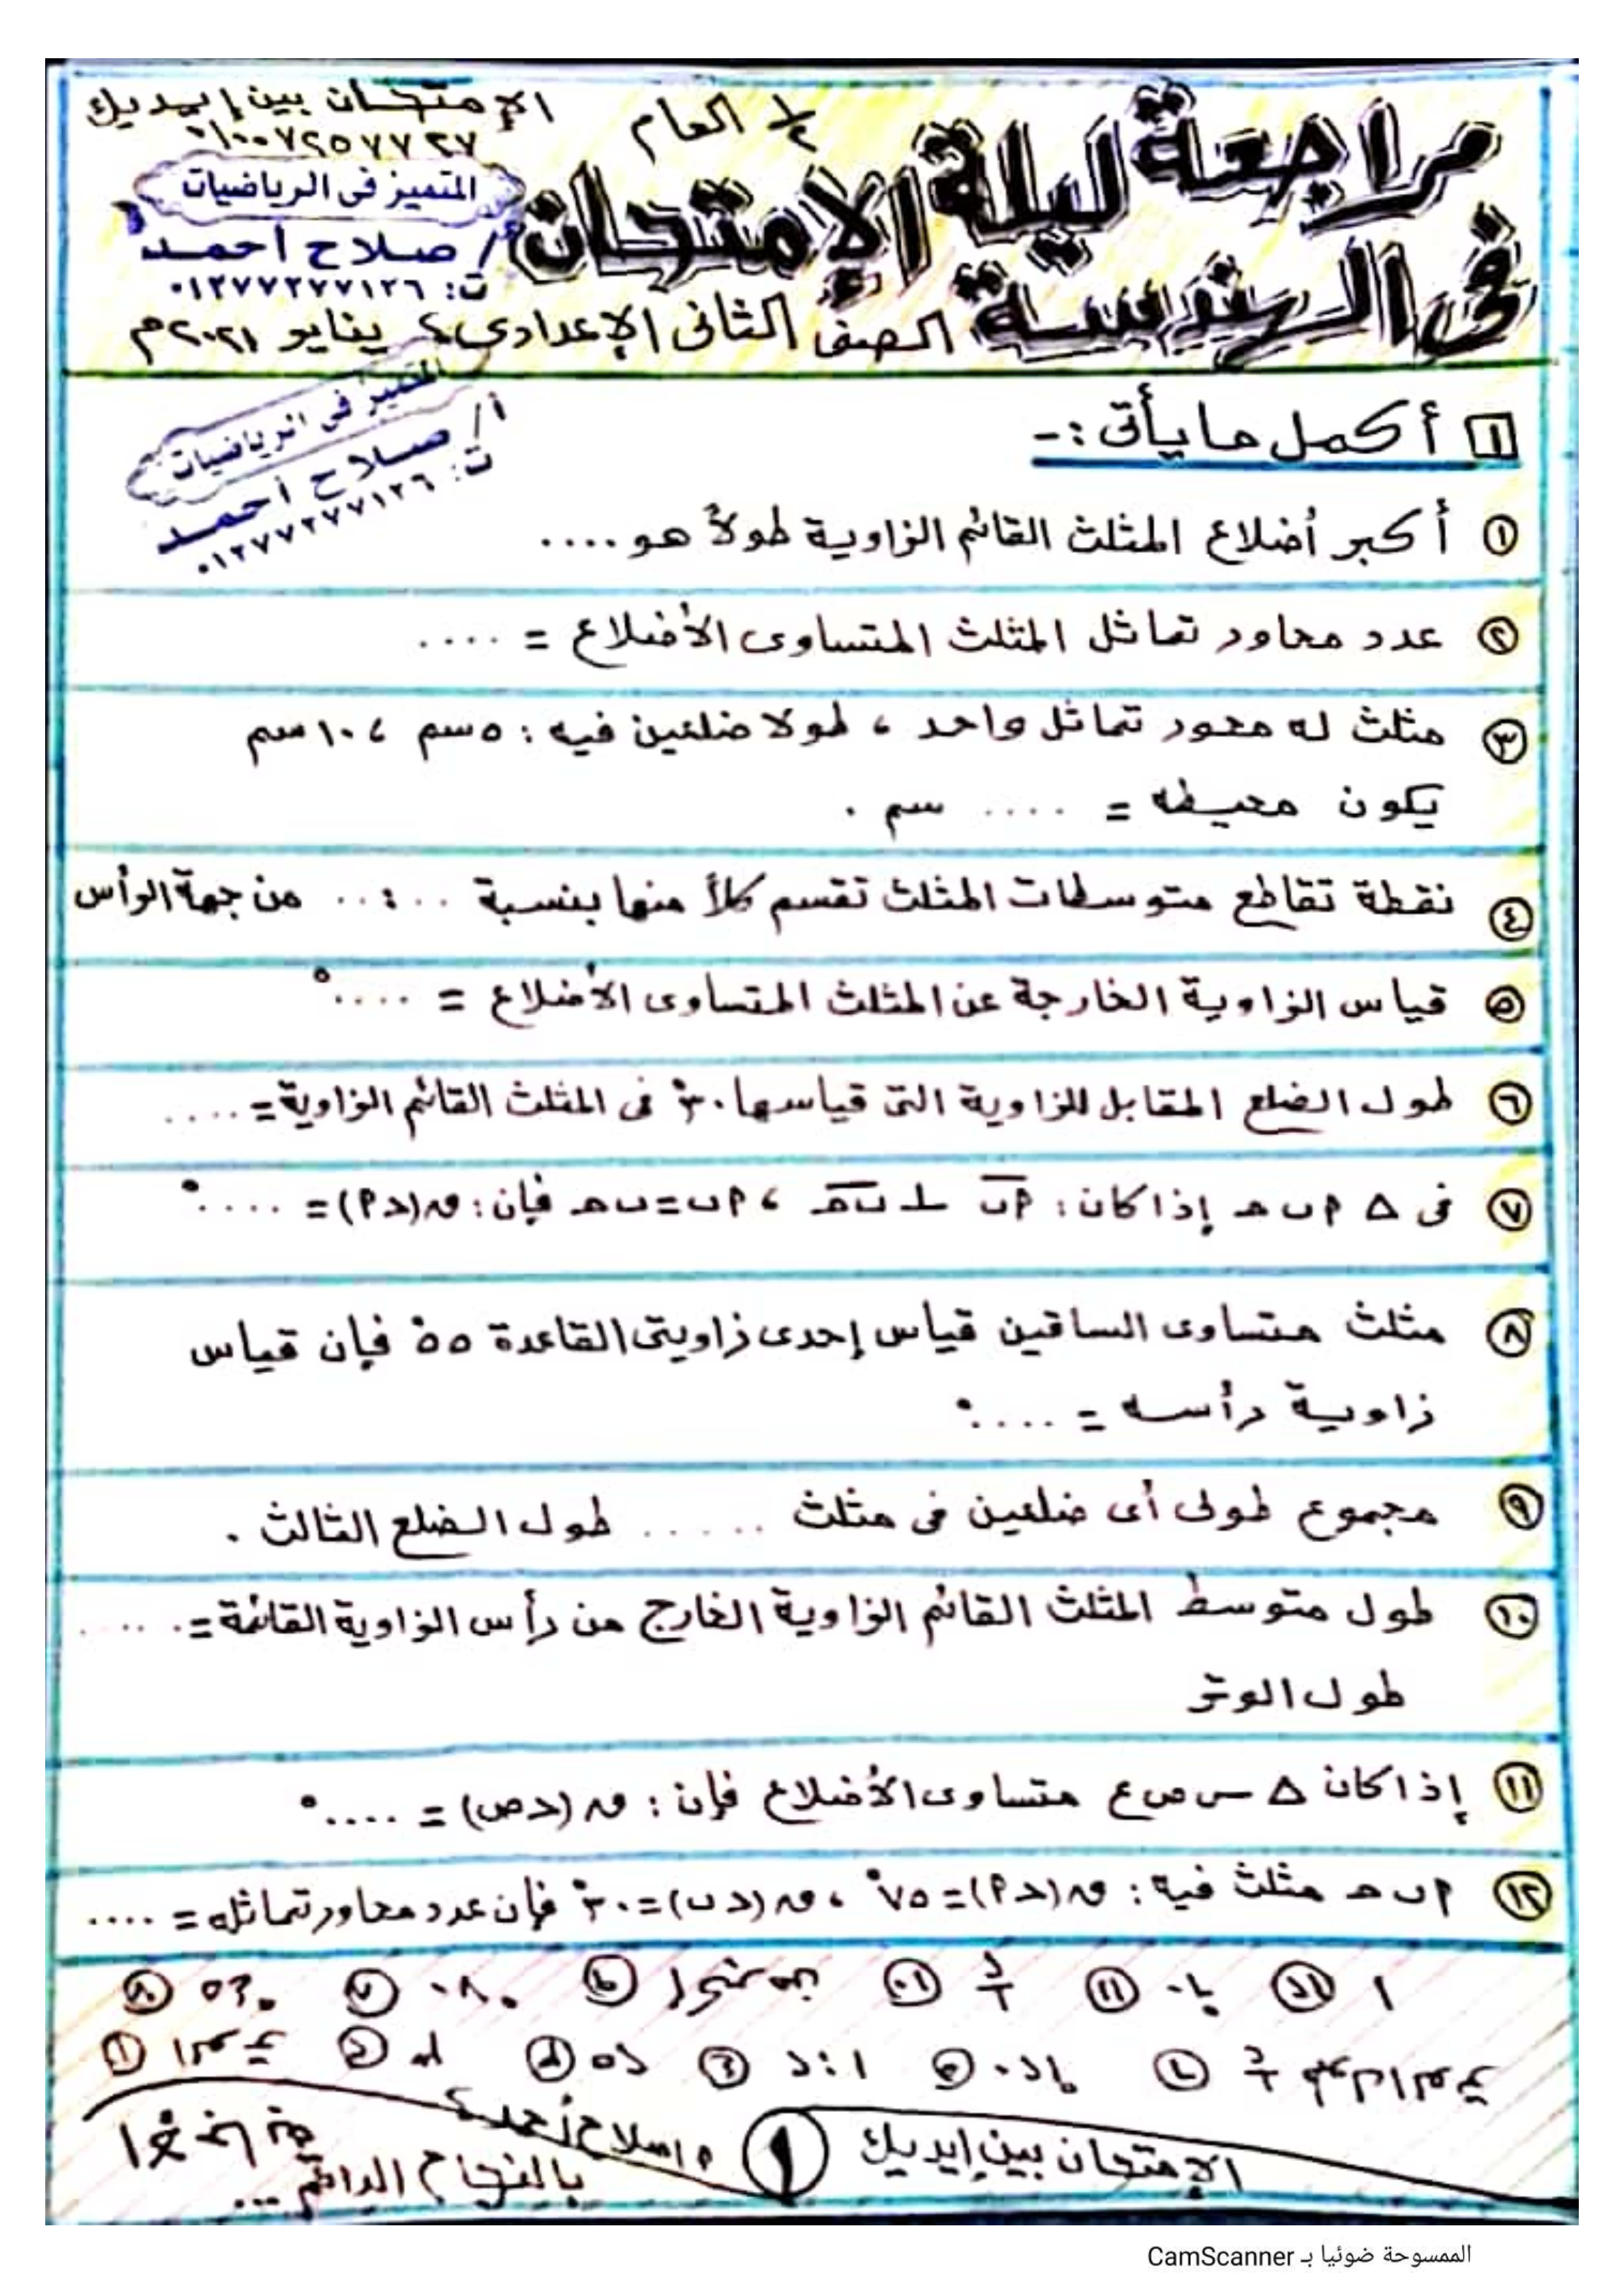 مراجعة ليلة الإمتحان
١/٢ العام
فى الهندسة
الصف الثانى الإعدادى ، يناير ٢٠٢١م
الإمتحان بين إيديك
٠١٠٠٧٢٥٧٧٢٧
المتميز فى الرياضيات
أ/ صلاح أحمد
ت: ٠١٢٧٧٢٧٧١٢٦
المتميز فى الرياضيات
أ/ صلاح أحمد
ت: ٠١٢٧٧٢٧٧١٢٦
١ أكمل ما يأتى :-
١ أكبر أضلاع المثلث القائم الزاوية طولاً هو ....
٢ عدد محاور تماثل المثلث المتساوى الأضلاع = ....
٣ مثلث له محور تماثل واحد ، طولا ضلعين فيه : ٥ سم ، ١٠ سم
يكون محيطه = .... سم .
٤ نقطة تقاطع متوسطات المثلث تقسم كلاً منها بنسبة .. : .. من جهة الرأس
٥ قياس الزاوية الخارجة عن المثلث المتساوى الأضلاع = ....°
٦ طول الضلع المقابل للزاوية التى قياسها ٣٠° فى المثلث القائم الزاوية = ....
٧ فى △ ٩ ب ح إذا كان : ٩ب ⊥ ب ح ، ٩ب = ب ح فإن : ق(د٩) = ....°
٨ مثلث متساوى الساقين قياس إحدى زاويتى القاعدة ٥٥° فإن قياس
زاوية رأسه = ....°
٩ مجموع طولى أى ضلعين فى مثلث ...... طول الضلع الثالث .
١٠ طول متوسط المثلث القائم الزاوية الخارج من رأس الزاوية القائمة = ......
طول الوتر
١١ إذا كان △ س ص ع متساوى الأضلاع فإن : ق (د ص) = ....°
١٢ ٩ ب ح مثلث فيه : ق(د٩) = ٧٥° ، ق(د ب) = ٣٠° فإن عدد محاور تماثله = ....
الإمتحان بين إيديك
١
أ/ صلاح أحمد
بالنجاح الدائم ...
الممسوحة ضوئيا بـ CamScanner